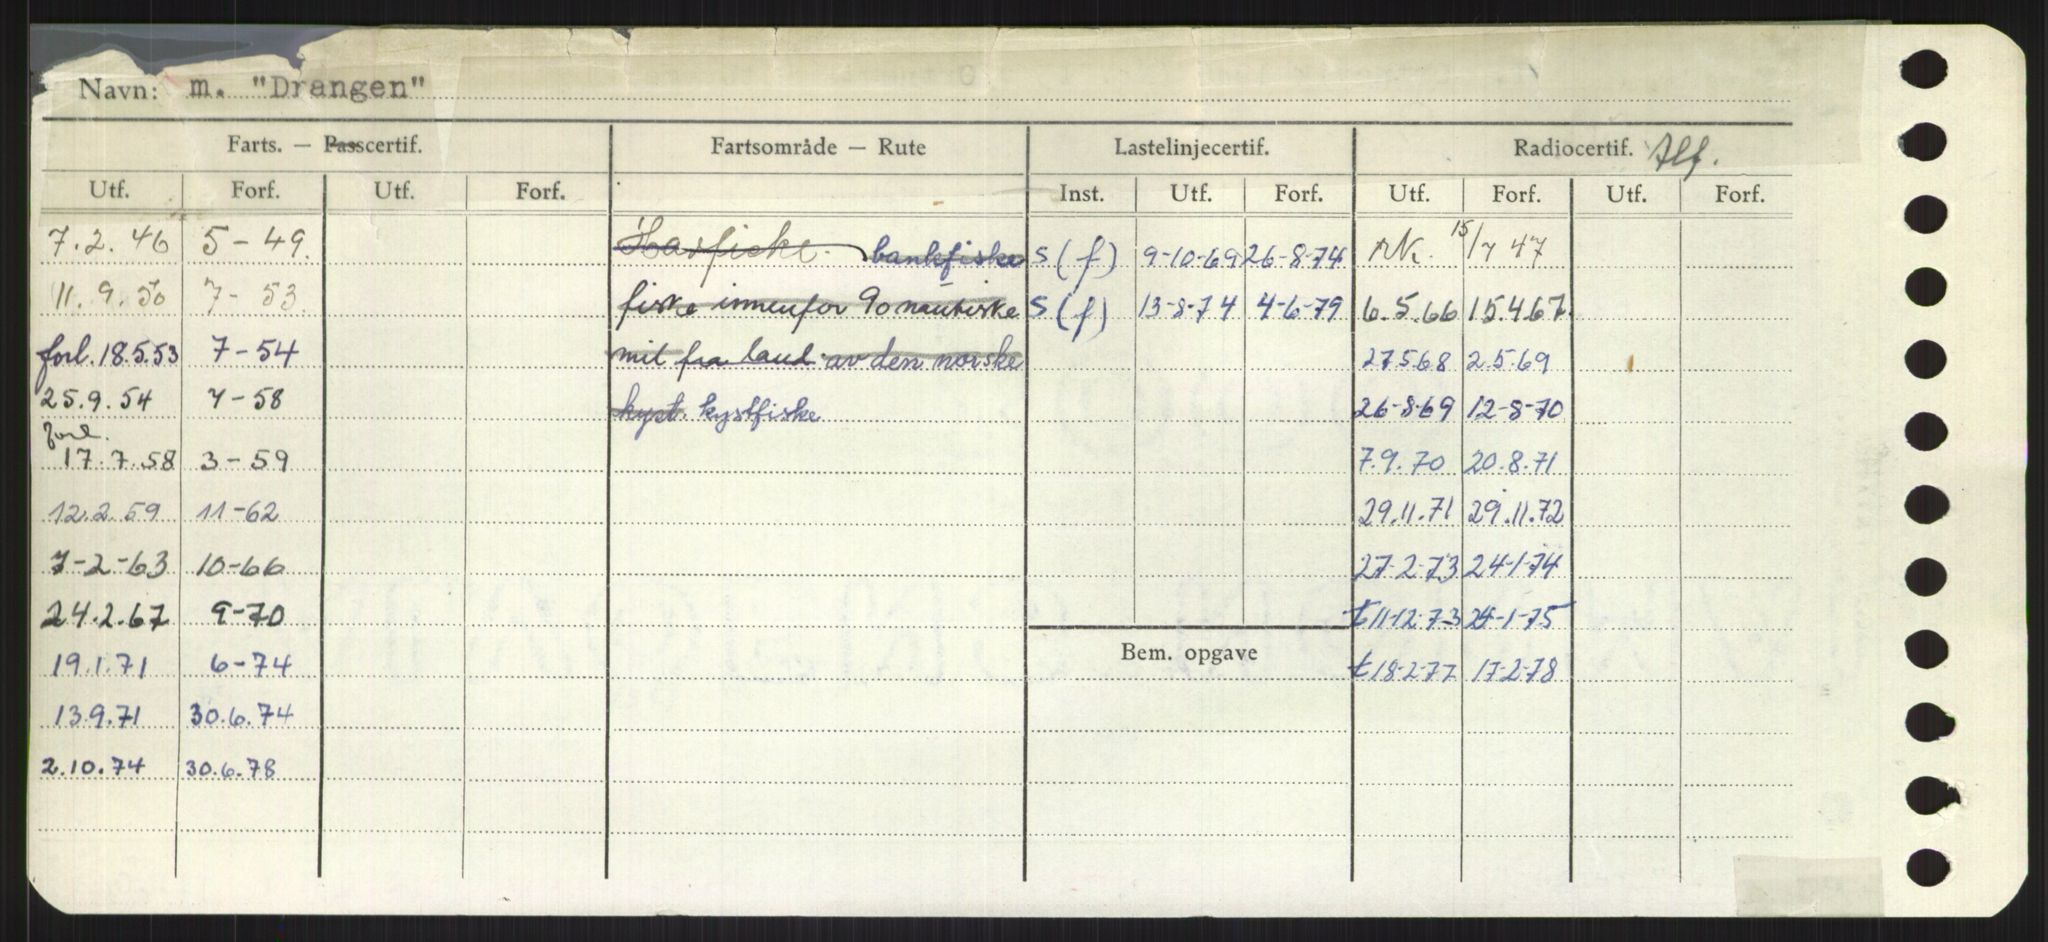 Navn: m. "Drangen"
Farts. — Passcertif. Fartsområde — Rute Lastelinjecertif. Radiocertif. Tlf.
Utf. Forf. Utf. Forf. Inst. Utf. Forf. Utf. Forf. Utf. Forf.
7.2.46 5-49. Havfiske. bankfiske S (f) 9-10-69 26-8-74 15/7 47
11.9.50 7-53. fiske innenfor 90 nautiske S (f) 13-8-74 4-6-79 6.5.66 15.4.67.
forl. 18.5.53 7-54 mil fra land av den norske 27.5.68 2.5.69
25.9.54 7-58 kyst. kystfiske 26-8-69 12-8-70
forl.
17.7.58 3-59 7.9.70 20.8.71
12.2.59 11-62 29.11.71 29.11.72
7-2-63 10-66 27-2-73 24-1-74
24.2.67 9-70 t 11-12-73 24-1-75
19.1.71 6-74 Bem. opgave t 18-2-77 17-2-78
13.9.71 30.6.74
2.10.74 30.6.78